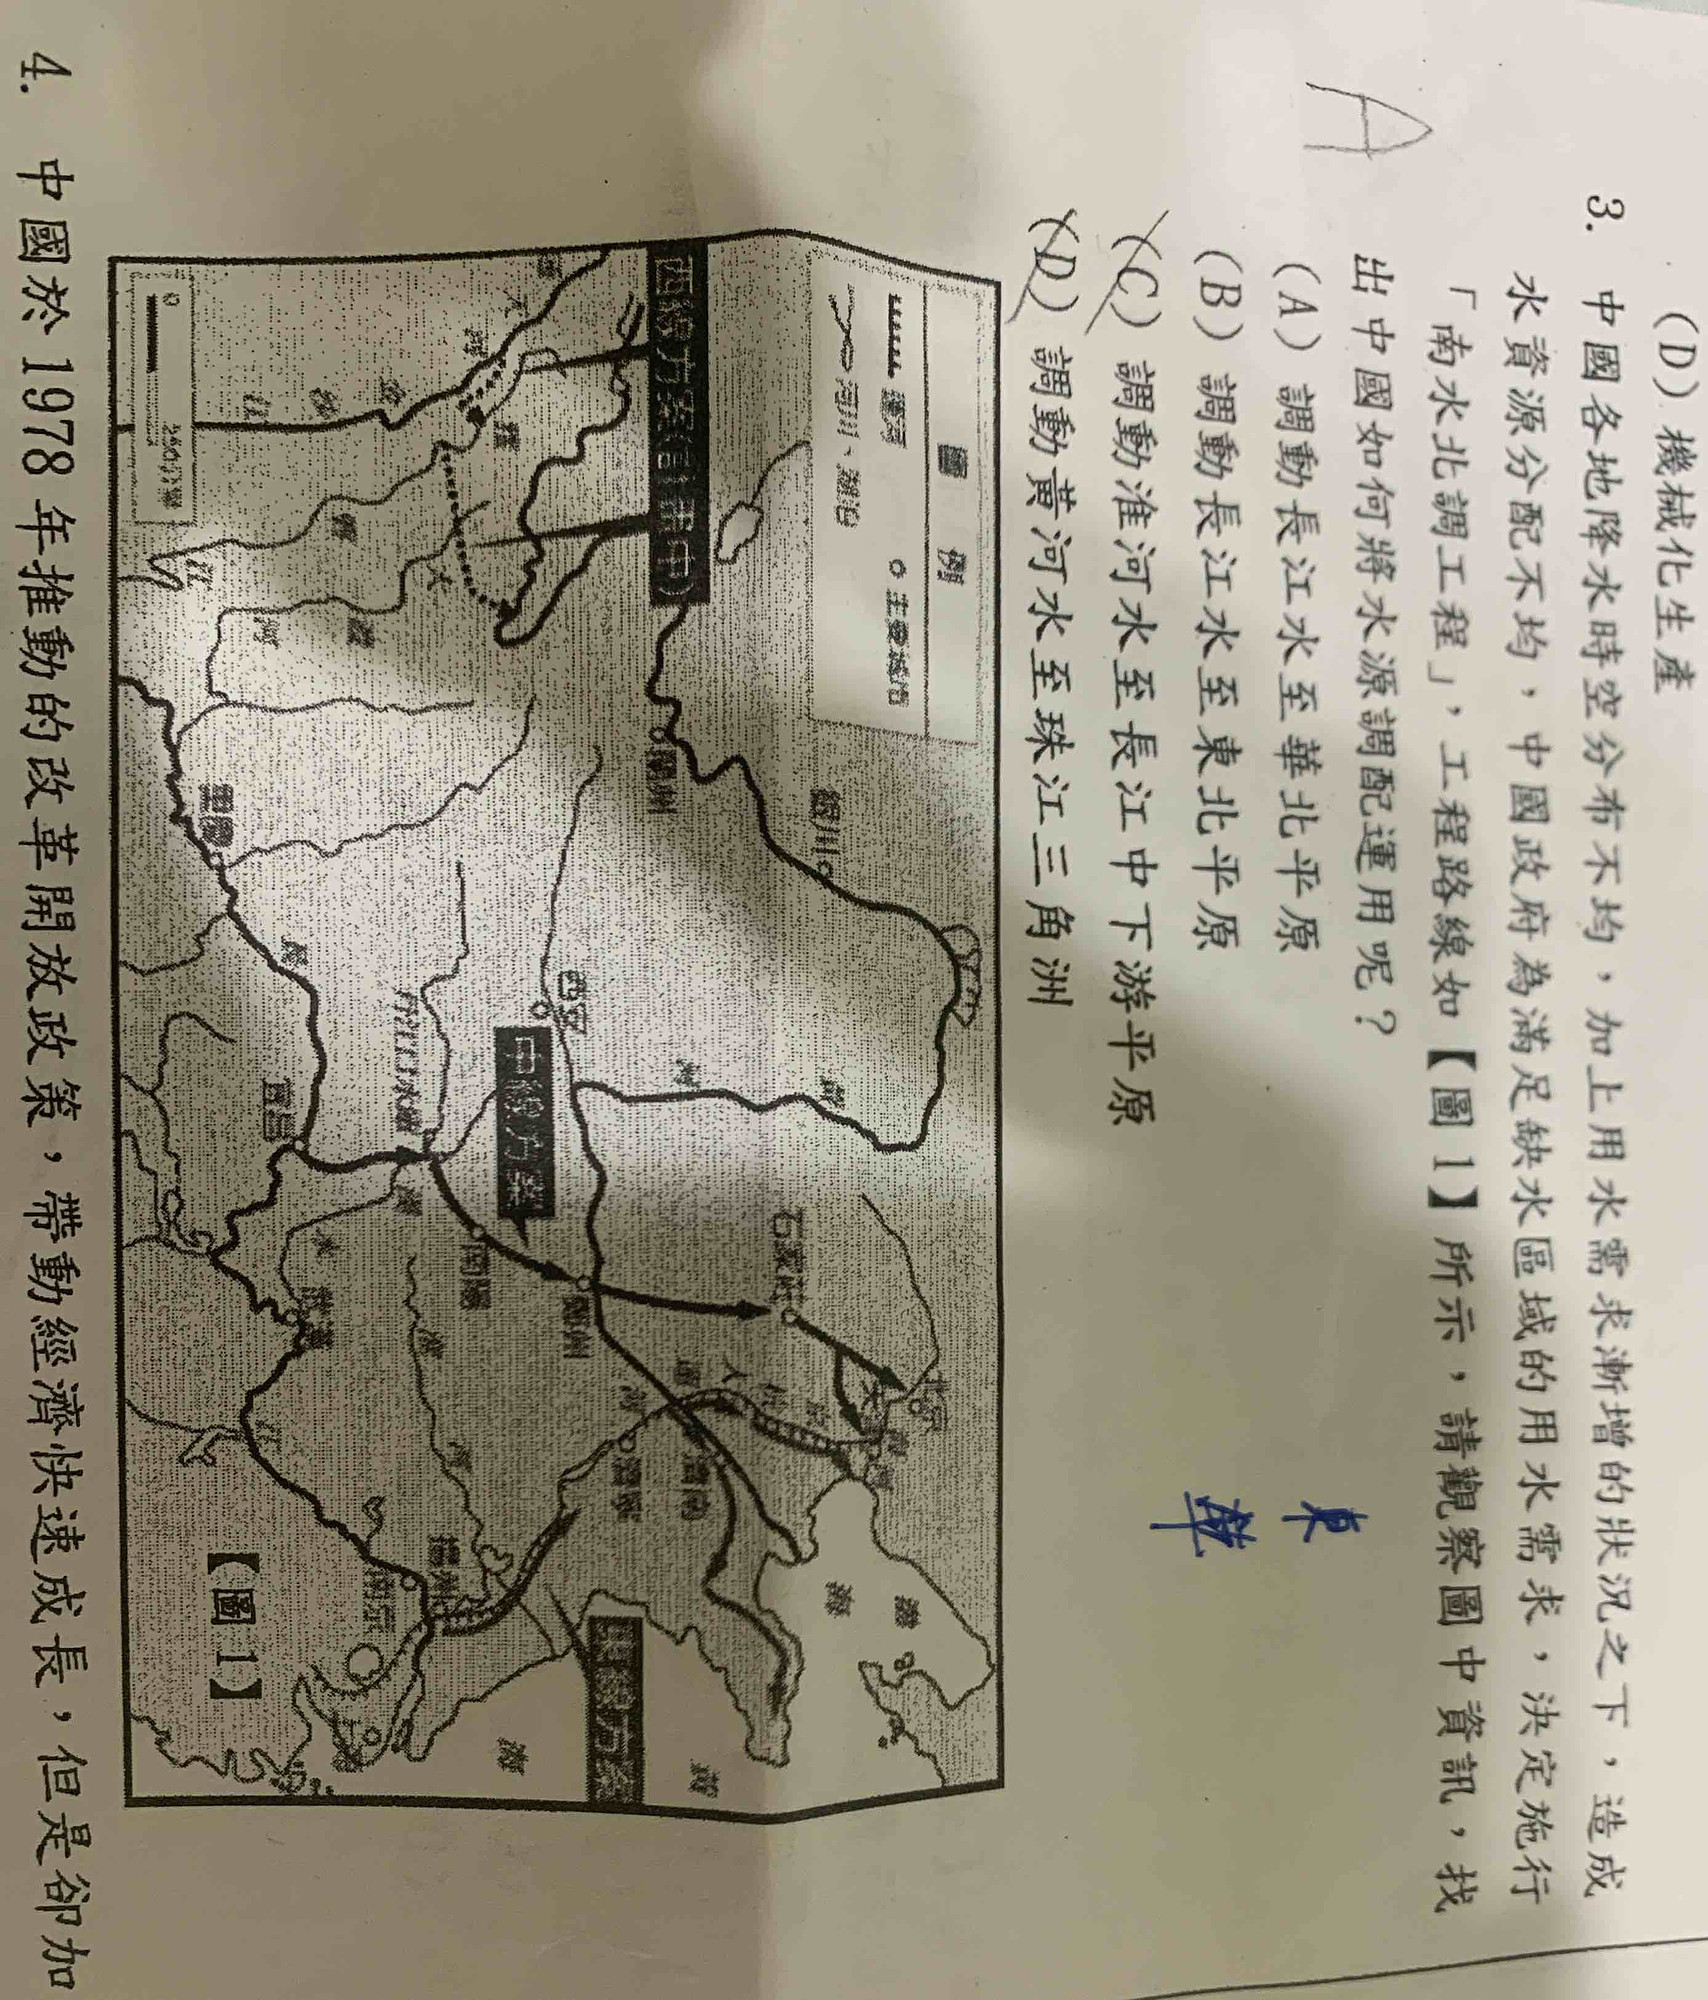 (D) 機械化生產
A
3. 中國各地降水時空分布不均，加上用水需求漸增的狀況之下，造成
水資源分配不均，中國政府為滿足缺水區域的用水需求，決定施行
「南水北調工程」，工程路線如【圖1】所示，請觀察圖中資訊，找
出中國如何將水源調配運用呢？
(A) 調動長江水至華北平原
(B) 調動長江水至東北平原
(C) 調動淮河水至長江中下游平原
(D) 調動黃河水至珠江三角洲
東
華
圖 例
運河
主要城市
河川、湖泊
渤
海
北京
銀川
石家莊
西線方案(言甘青中)
蘭州
濟南
黃
河
西安
鄭州
臨清
東線方案
中線方案
丹江口水庫
南陽
漢
水
淮
河
海
揚州
南京
重慶
宜昌
武漢
長
江
0 250公里
【圖1】
4. 中國於1978年推動的改革開放政策，帶動經濟快速成長，但是卻加